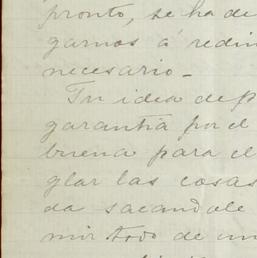 pronto, se ha de
garnos á redim
necesario_
Tu idea de p
garantía por el
buena para el
glar las cosas
da sacandole
mir todo de un